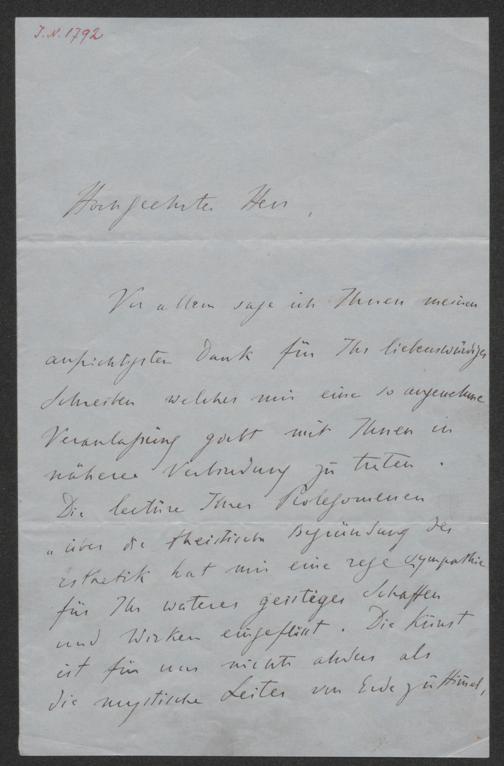 J.N. 1792
Hochgeehrter Herr,
Vor allem sage ich Ihnen meinen
aufrichtigsten Dank für Ihr liebenswürdiges
Schreiben welches mir eine so angenehme
Veranlaßung giebt mit Ihnen in
nähere Verbindung zu treten.
Die lectüre Ihrer Prolegomenen
„über die theistische Begründung der
esthetik hat mir eine rege Sympathie
für Ihr wateres geistiges Schaffen
und Wirken eingeflößt. Die Kunst
ist für uns nichts anders als
die mystische Leiter von Erde zu Himel,